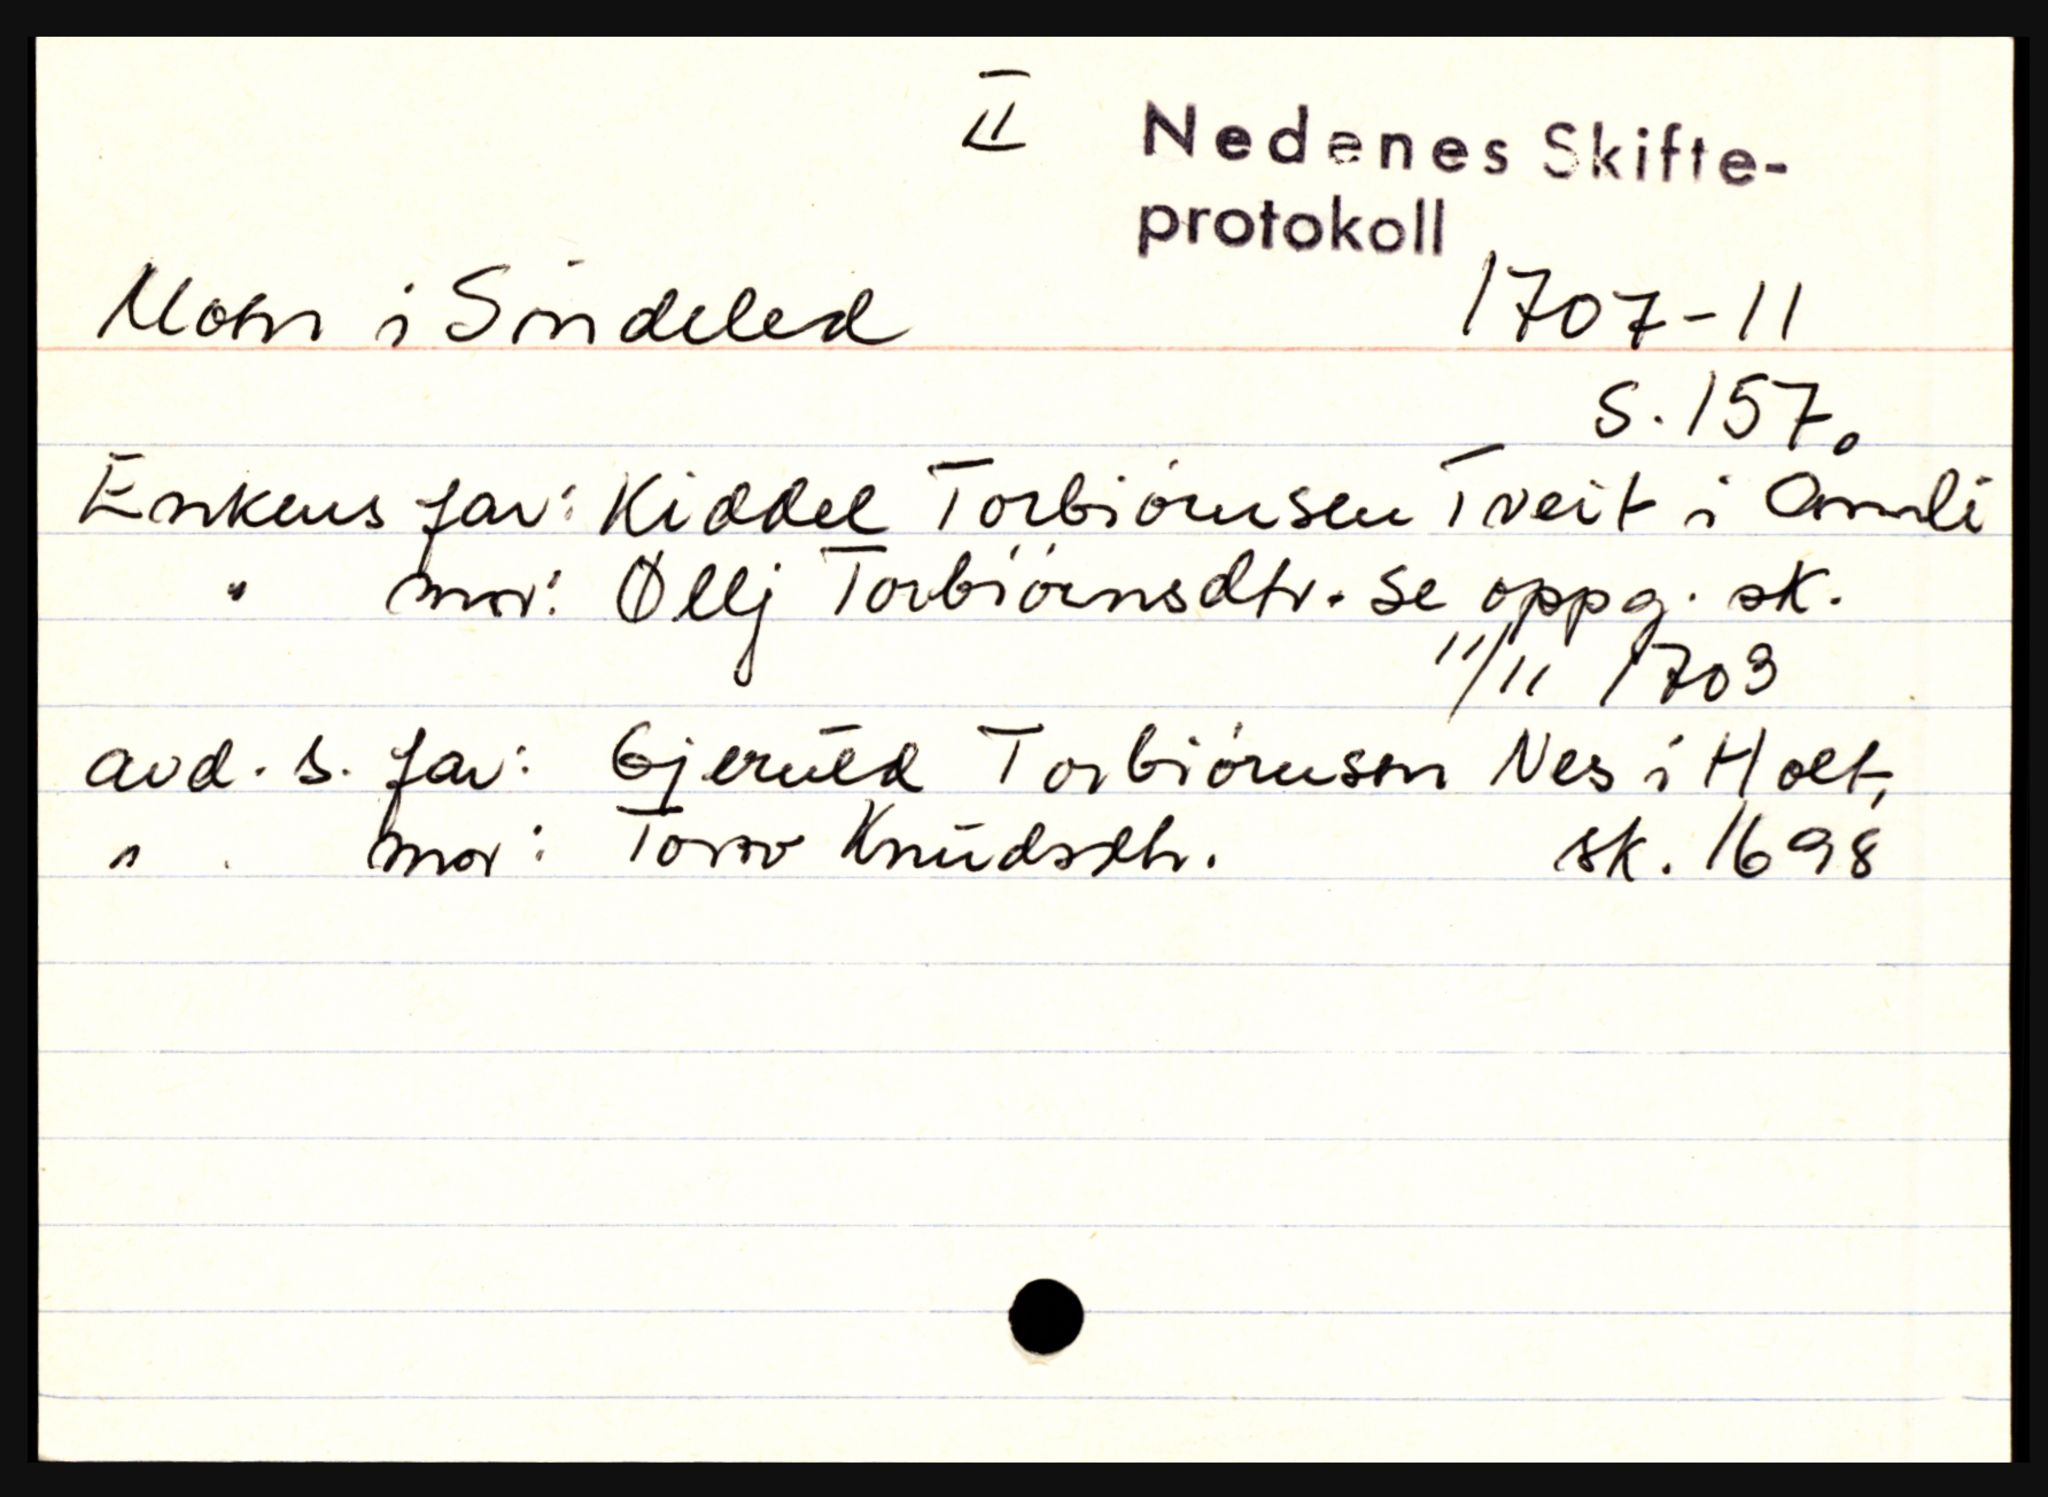 II
Nedenes Skifte-
protokoll
Moen i Sindeled 1707-11
S. 157.
Enkens far: Kiddel Torbiörnsen Tveit i Åmli
" mor: Øllj Torbiörnsdtr. se oppg. sk.
11/11 1703
avd. s. far: Gjeruld Torbiörnsen Nes i Holt,
" mor: Toror Knudsdtr. sk. 1698